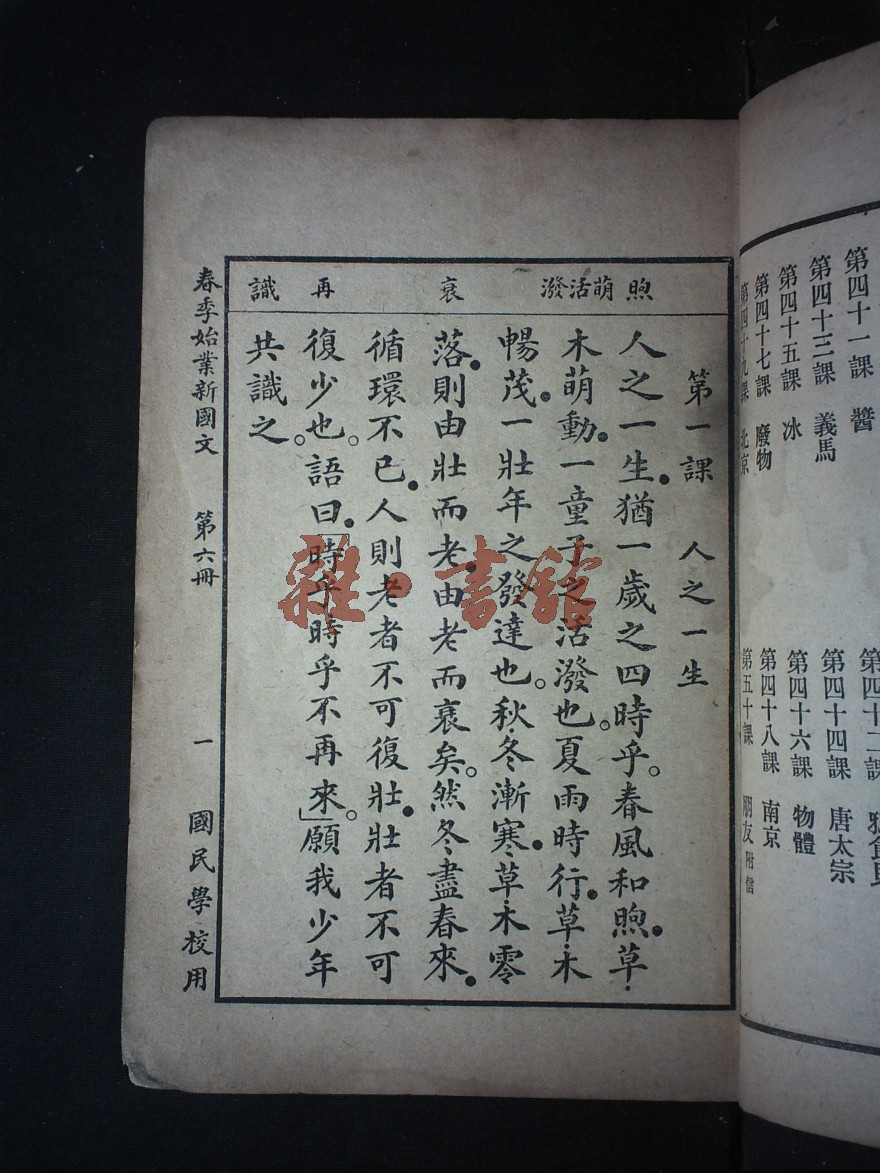 第四十一課 醬
第四十三課 義馬
第四十五課 冰
第四十七課 廢物
第四十九課 北京
第四十二課
第四十四課 唐太宗
第四十六課 物體
第四十八課 南京
第五十課 朋友 附信
煦 萌 活潑 衰 再 識
第一課 人之一生
人之一生。猶一歲之四時乎。春風和煦。草·
木萌動。一童子之活潑也。夏雨時行。草·木
暢茂。一壯年之發達也。秋·冬漸寒。草·木零
落。則由壯而老。由老而衰矣。然冬盡春來。
循環不已。人則老者不可復壯。壯者不可
復少也。語曰。「時乎時乎不再來。」願我少年
共識之。
春季始業新國文 第六冊 一 國民學校用
雜·書館